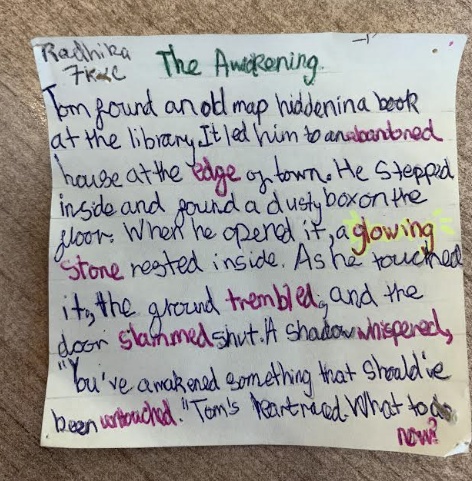 Radhika The Awakening.
7K
Tom found an old map hidden in a book
at the library. It led him to an abandoned
house at the edge of town. He stepped
inside and found a dusty box on the
floor. When he opened it, a glowing
stone rested inside. As he touched
it, the ground trembled, and the
door slammed shut. A shadow whispered,
"You've awakened something that should've
been untouched." Tom's heart raced. What to do
now?